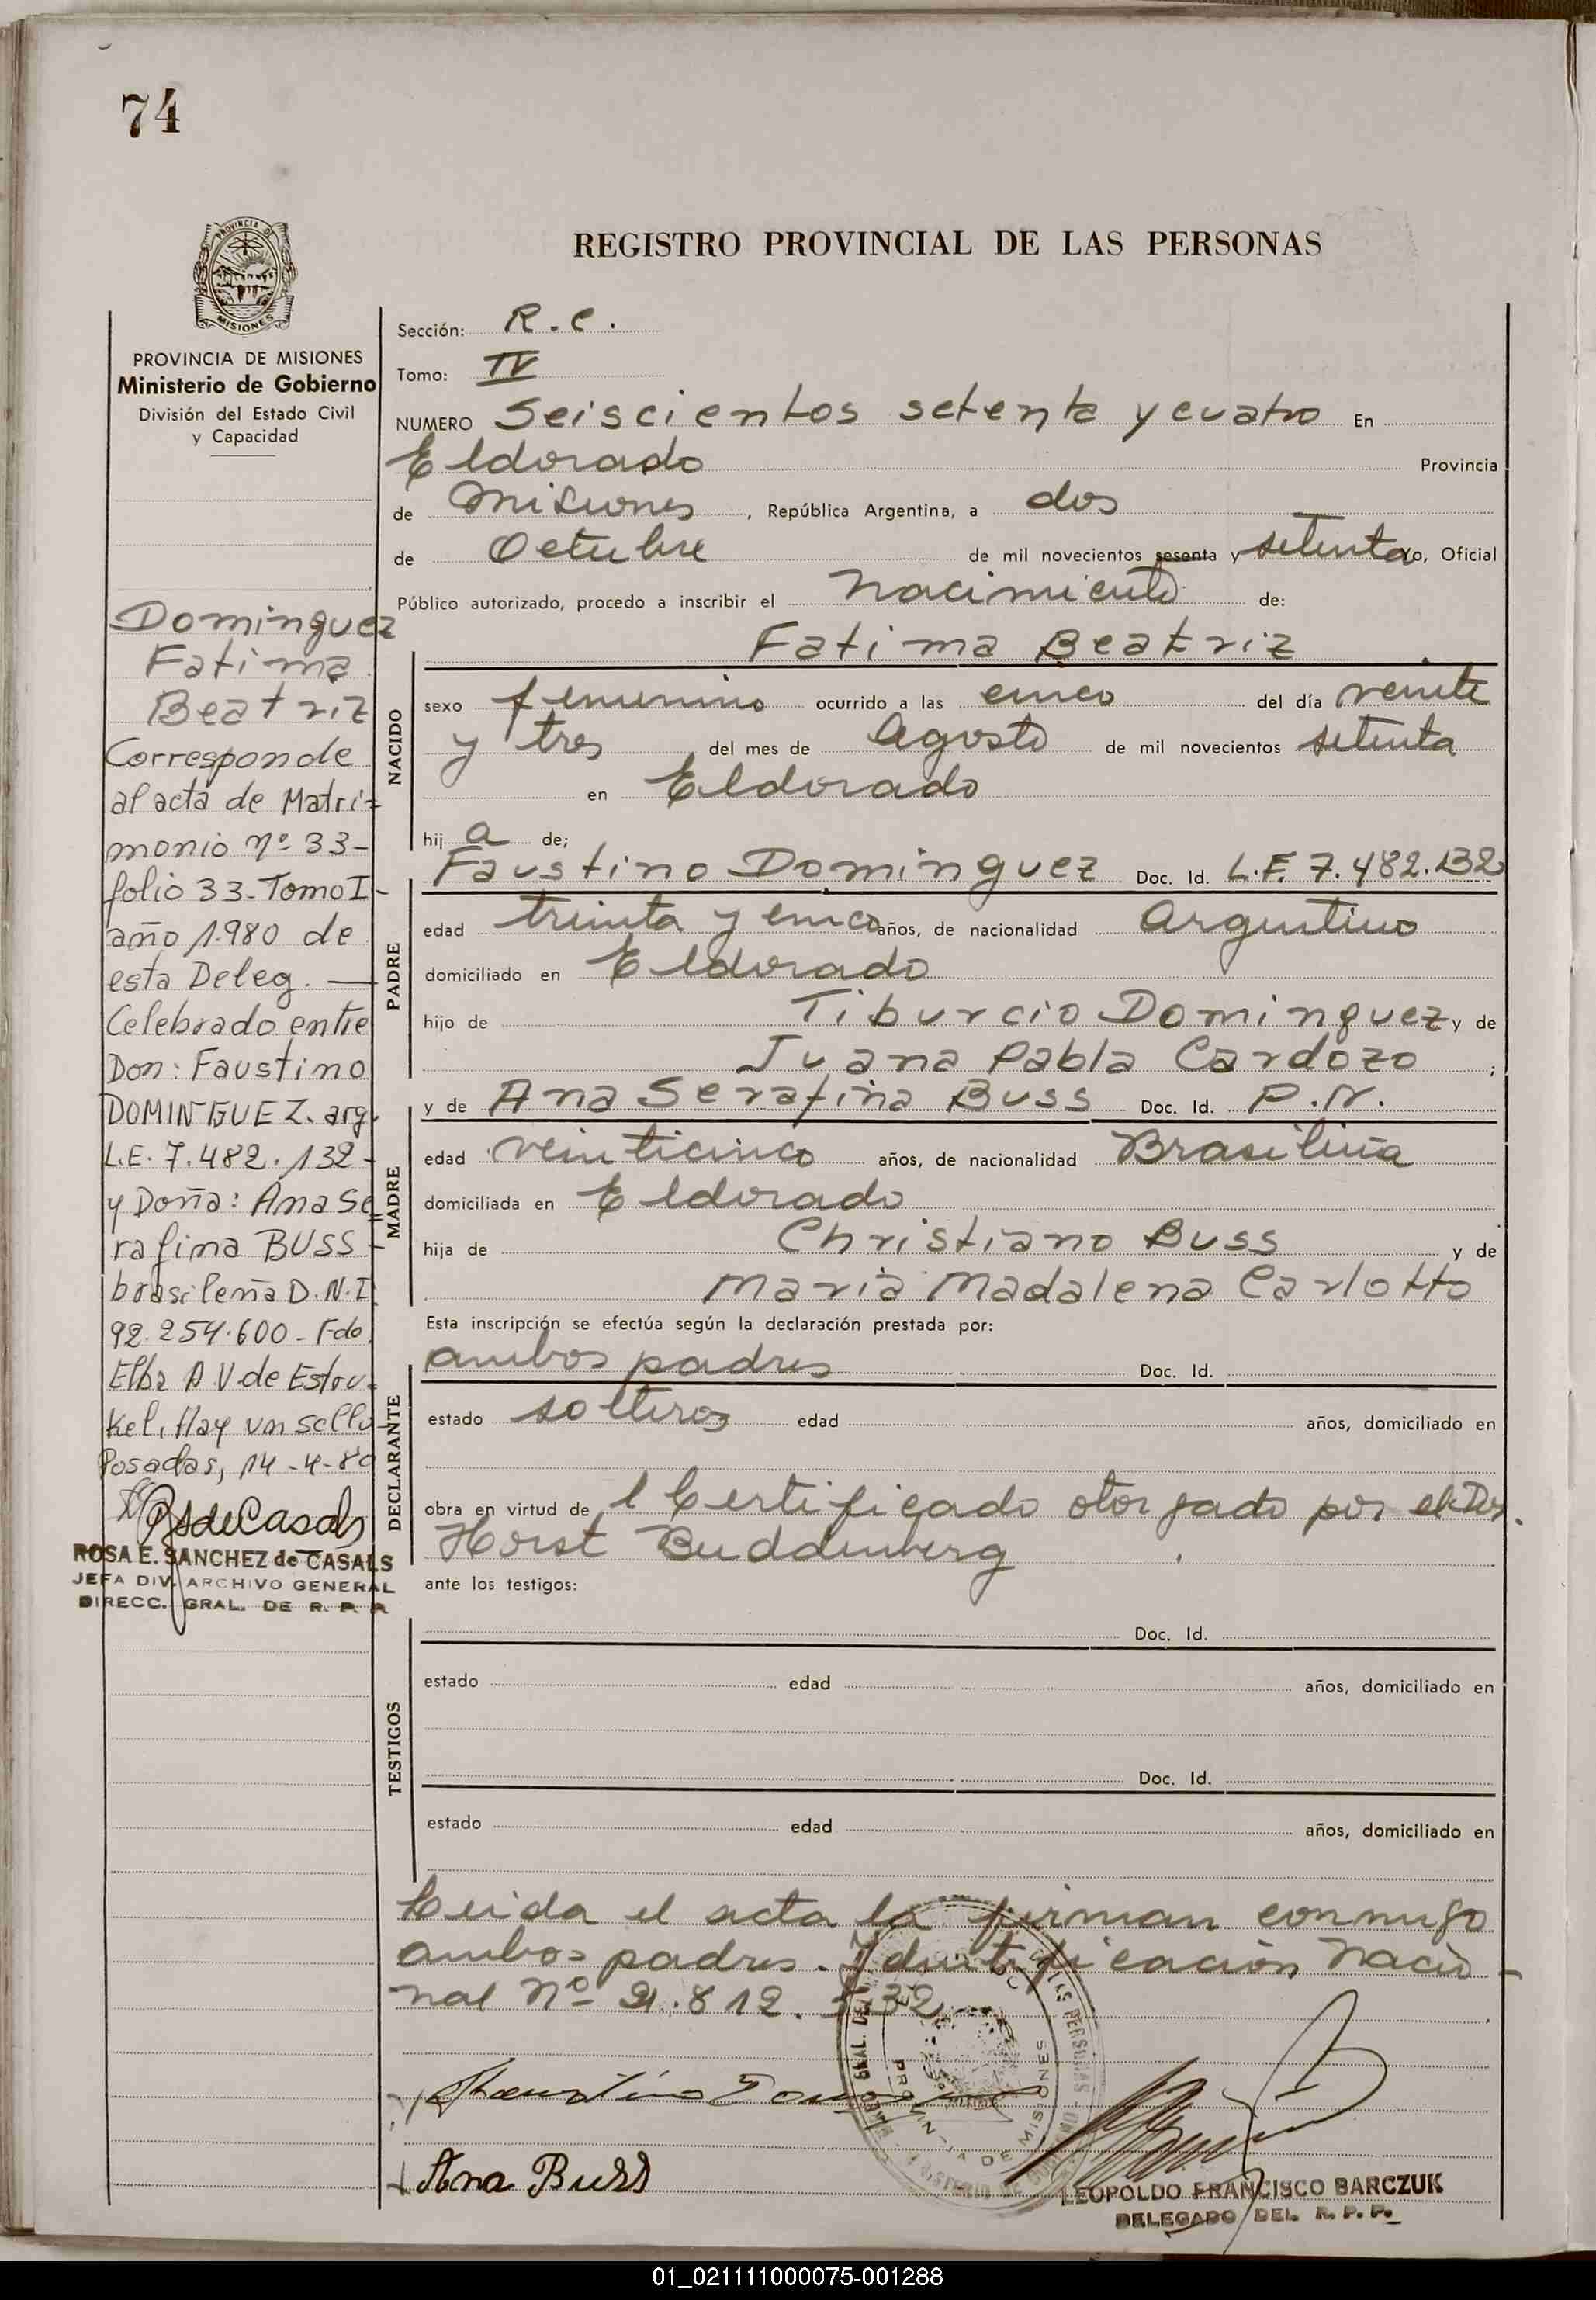 74
PROVINCIA DE
MISIONES
PROVINCIA DE MISIONES
Ministerio de Gobierno
División del Estado Civil
y Capacidad
Dominguez
Fatima
Beatriz
Corresponde
al acta de Matri=
monio nº 33-
folio 33-Tomo I-
año 1.980 de
esta Deleg. —
Celebrado entre
Don: Faustino
DOMINGUEZ. arg.
L.E. 7.482.132-
y Doña: Ana Se
rafina BUSS-
brasileña D.N.I.
92.254.600- Fdo.
Elba A V de Estou-
kel, Hay un sello-
Posadas, 14-4-80
RSdeCasals
ROSA E. SANCHEZ de CASALS
JEFA DIV. ARCHIVO GENERAL
DIRECC. GRAL. DE R. P. P.
REGISTRO PROVINCIAL DE LAS PERSONAS
Sección: R.C.
Tomo: IV
NUMERO Seiscientos setenta y cuatro En
Eldorado Provincia
de Misiones, República Argentina, a dos
de Octubre de mil novecientos sesenta y setenta yo, Oficial
Público autorizado, procedo a inscribir el nacimiento de:
Fatima Beatriz
NACIDO
sexo femenino ocurrido a las cinco del día veinte
y tres del mes de Agosto de mil novecientos setenta
en Eldorado
hij a de;
Faustino Dominguez Doc. Id. L.E. 7.482.132
PADRE
edad treinta y cinco años, de nacionalidad Argentino
domiciliado en Eldorado
hijo de Tiburcio Dominguez y de
Juana Pabla Cardozo ;
y de Ana Serafina Buss Doc. Id. P.N.
MADRE
edad veinticinco años, de nacionalidad Brasileña
domiciliada en Eldorado
hija de Christiano Buss y de
Maria Madalena Carlotto
Esta inscripción se efectúa según la declaración prestada por:
ambos padres Doc. Id.
DECLARANTE
estado solteros edad años, domiciliado en
obra en virtud de l Certificado otorgado por el Dr.
Horst Buddenberg
ante los testigos:
Doc. Id.
TESTIGOS
estado edad años, domiciliado en
Doc. Id.
estado edad años, domiciliado en
Leida el acta la firman conmigo
ambos padres. Identificación Nacio-
nal Nº 21.812.532
Faustino Domin
Ana Buss
PROVINCIA DE MISIONES
LEOPOLDO FRANCISCO BARCZUK
DELEGADO DEL R. P. P.
01_021111000075-001288